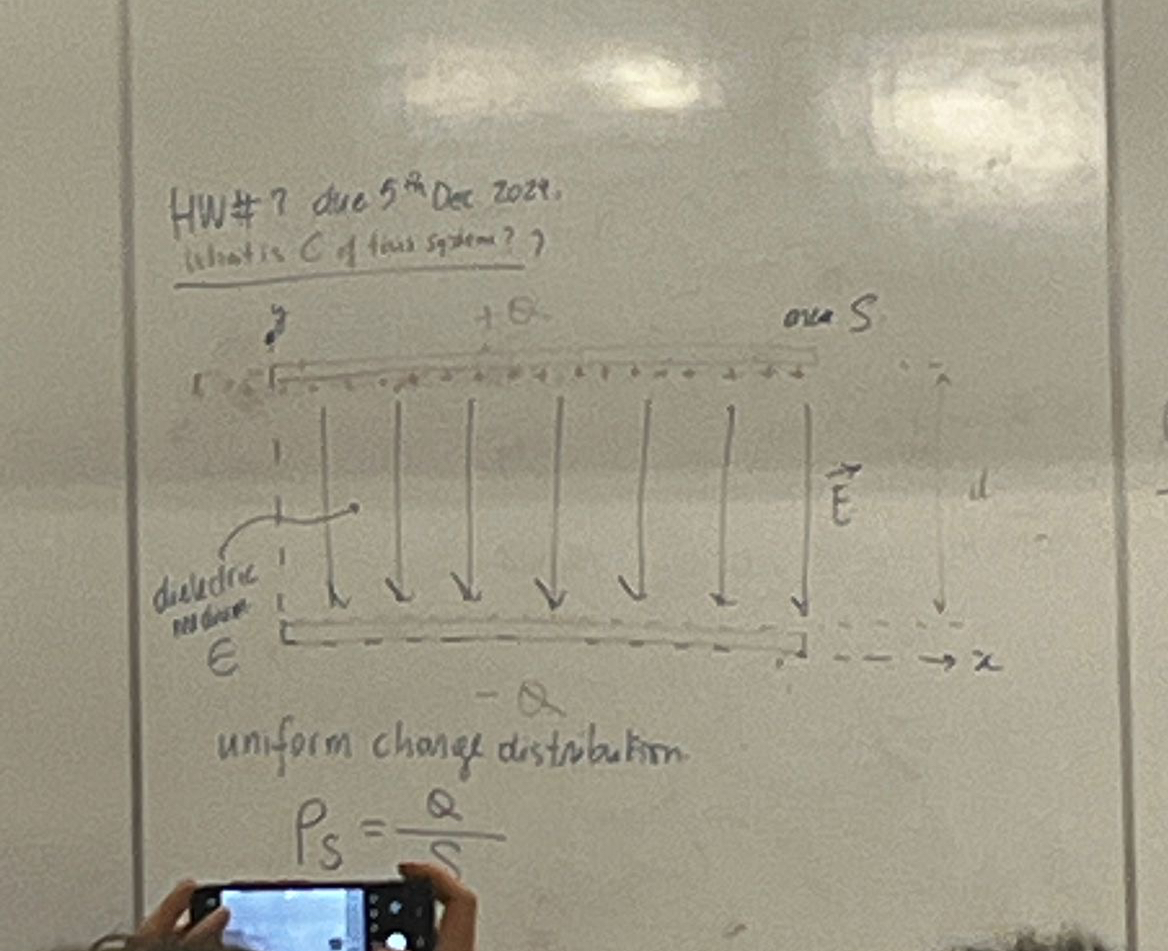 HW#7 due 5th Dec 2024.
What is C of this system?
y
+ Q
area S
E
d
dielectric
medium
ϵ
x
- Q
uniform charge distribution
ρs = Q
S